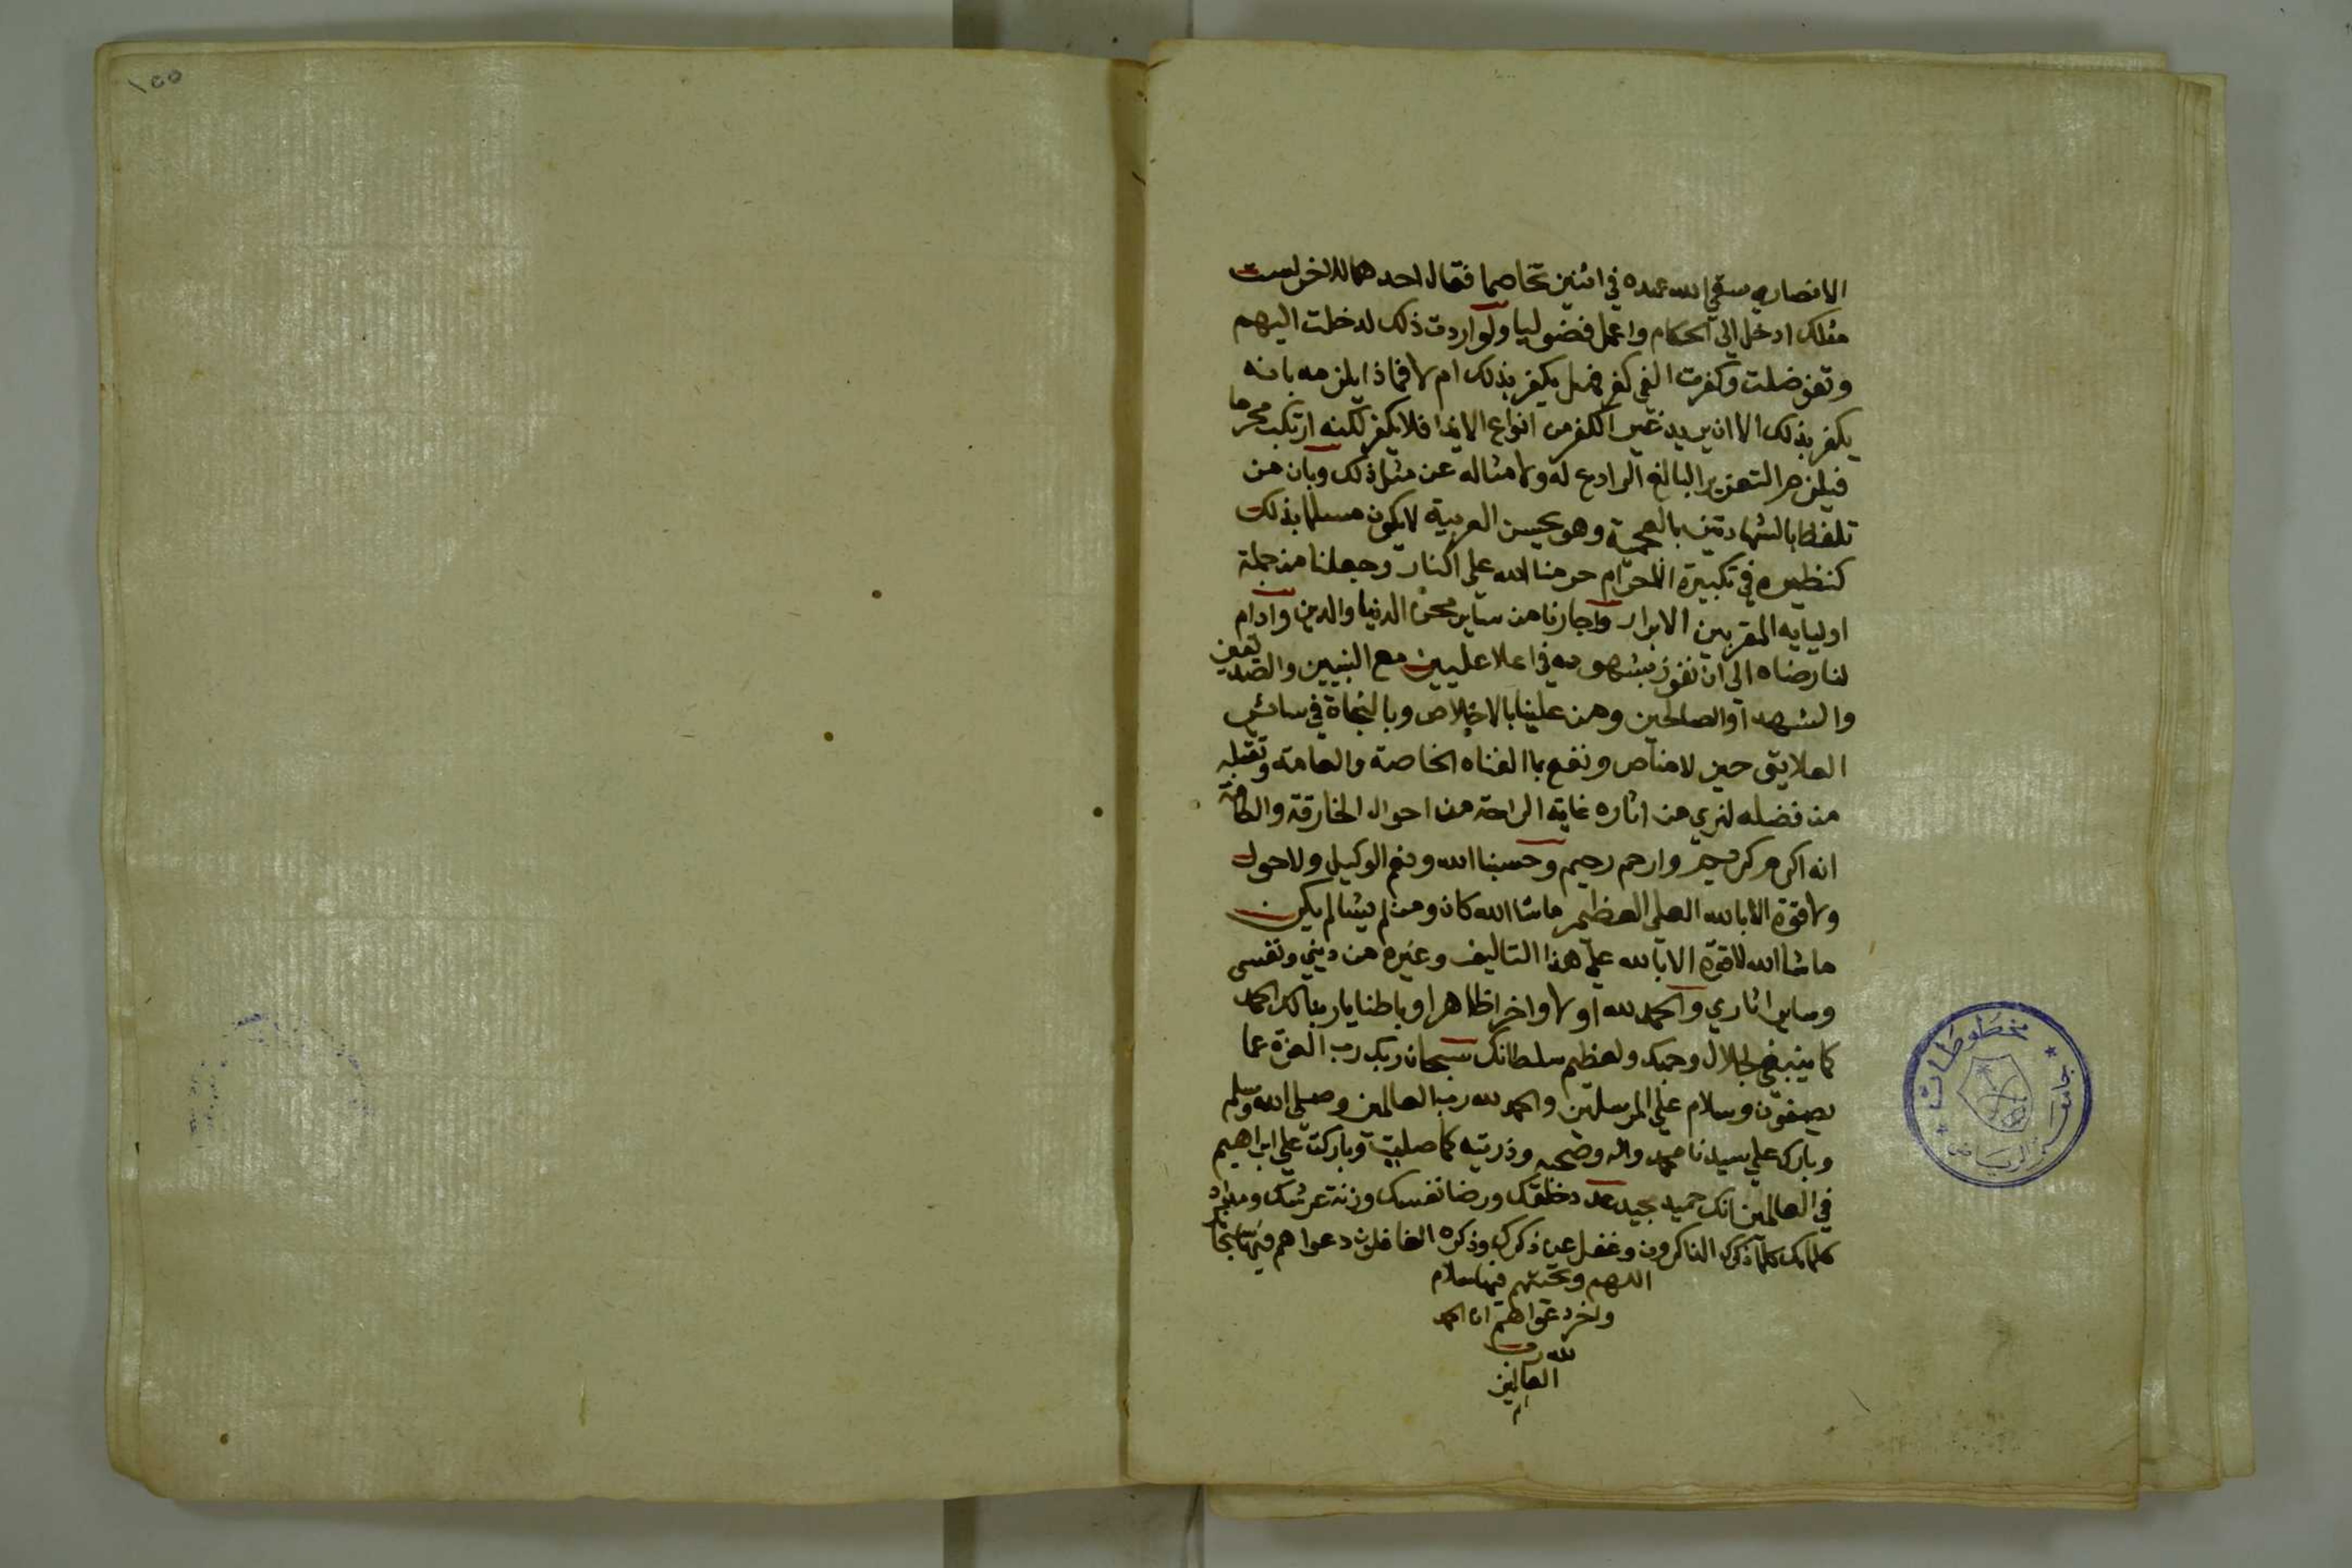 الانصاري سقي الله عهده في اثنين تخاصما فقال احدهما للاخر لست
مثلك ادخل الي الحكام واعمل فضوليا ولو اردت ذلك لدخلت اليهم
وتفوضلت وكفرت الفي كفر فهل يكفر بذلك ام لا فماذا يلزمه بانه
يكفر بذلك الا ان يريد غير الكفر من انواع الايذا فلا يكفر لكنه ارتكب محرما
فيلزمه التعزير البالغ الرادع له ولامثاله عن مثل ذلك وبان من
تلفظ بالشهادتين بالعجمية وهو يحسن العربية لا يكون مسلما بذلك
كنظيره في تكبيرة الاحرام حرمنا الله علي النار وجعلنا من جملة
اوليايه المقربين الابرار واجارنا من ساير محن الدنيا والدين وادام
لنا رضاه الي ان نفوز بشهوده في اعلا عليين مع النبيين والصديقين
والشهدا والصالحين ومن علينا بالاخلاص وبالنجاة في سائر
العلايق حين لا مناص ونفع بما الفناه الخاصة والعامة وتقبله
من فضله لنري من اثاره غاية الراحة من احوال الخارقة والطامة
انه اكرم كريم وارحم رحيم وحسبنا الله ونعم الوكيل ولا حول
ولا قوة الا بالله العلي العظيم ما شا الله كان وما لم يشا لم يكن
ما شا الله لا قوة الا بالله علي هذا التاليف وغيره من ديني ونفسي
وساير اثاري والحمد لله اولا واخرا ظاهرا وباطنا يا ربنا لك الحمد
كما ينبغي لجلال وجهك ولعظيم سلطانك سبحان ربك رب العزة عما
يصفون وسلام علي المرسلين والحمد لله رب العالمين وصلي الله وسلم
وبارك علي سيدنا محمد واله وصحبه وذريته كما صليت وباركت علي ابراهيم
في العالمين انك حميد مجيد عدد خلقك ورضا نفسك وزنة عرشك ومداد
كلماتك كلما ذكرك الذاكرون وغفل عن ذكرك وذكره الغافلون دعواهم فيها سبحانك
اللهم وتحيتهم فيها سلام
واخر دعواهم ان الحمد
لله رب
العالمين
م
١٥٥
مخطوطات
جامعة الرياض